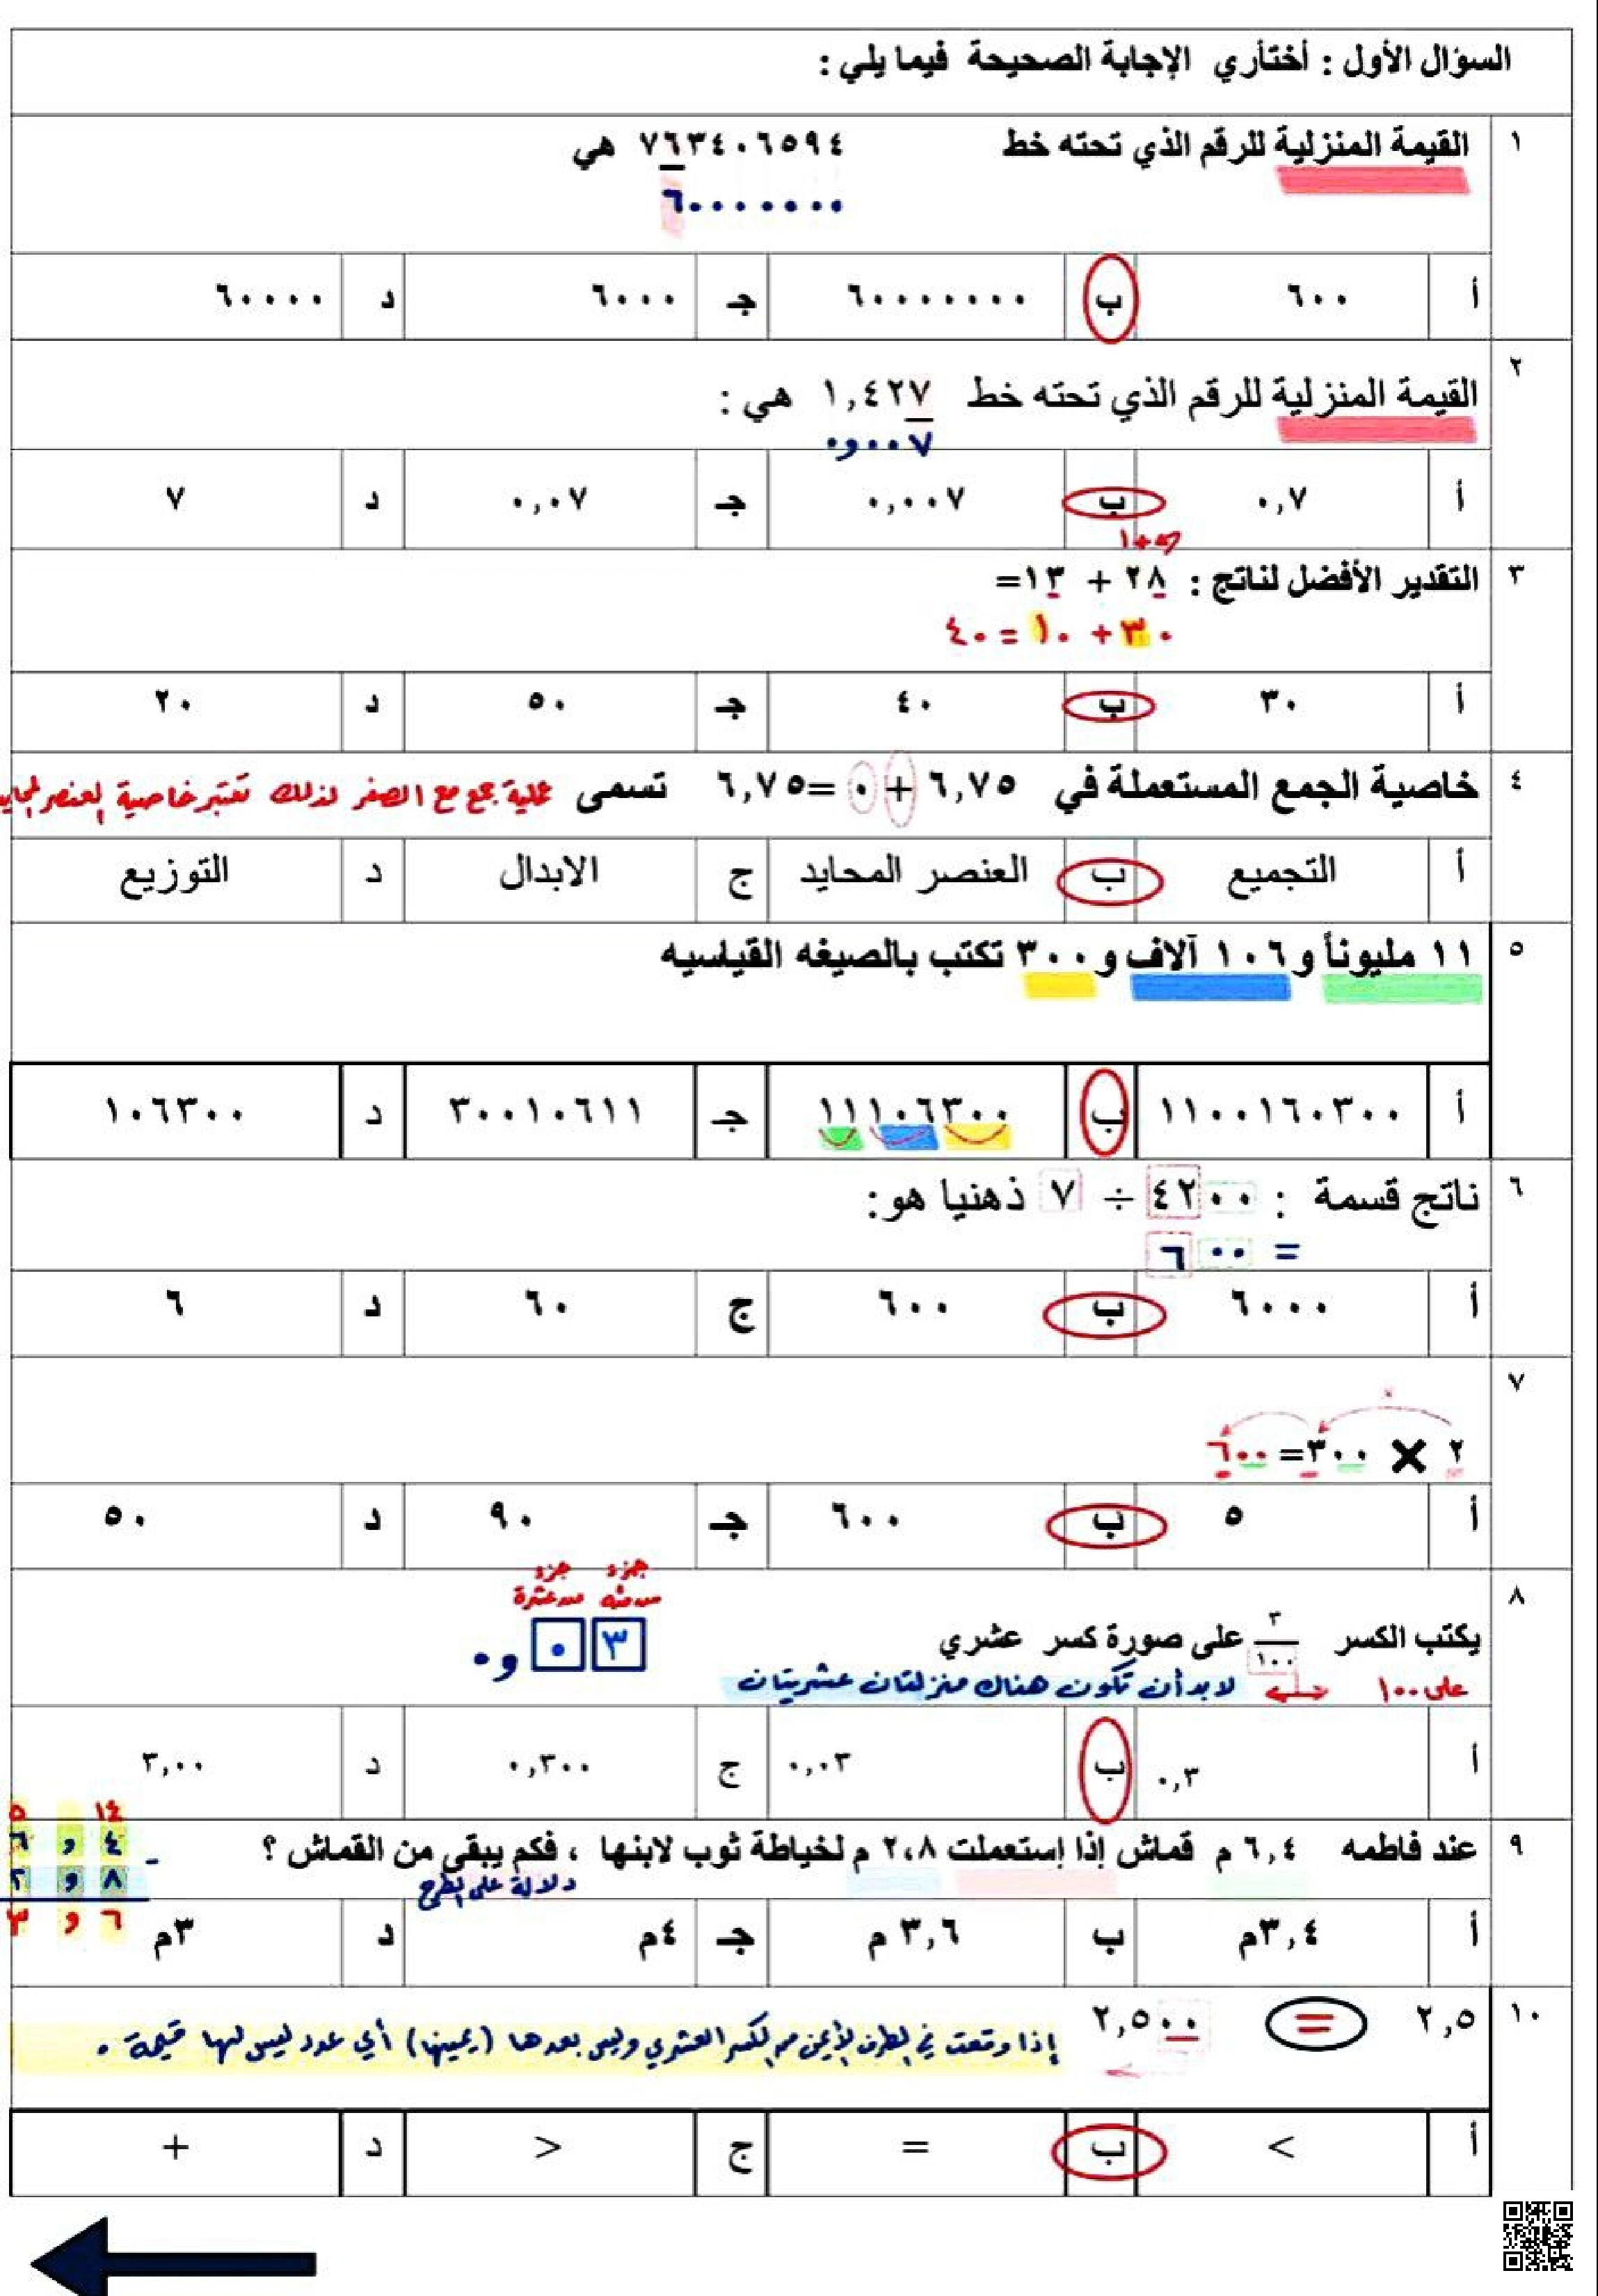 السؤال الأول : أختأري الإجابة الصحيحة فيما يلي :
١ القيمة المنزلية للرقم الذي تحته خط ٧٦٣٤٠٦٥٩٤ هي
٦٠٠٠٠٠٠٠
أ ٦٠٠ ب ٦٠٠٠٠٠٠٠ جـ ٦٠٠٠ د ٦٠٠٠٠
٢ القيمة المنزلية للرقم الذي تحته خط ١,٤٢٧ هي :
٠,٠٠٧
أ ٠,٧ ب ٠,٠٠٧ جـ ٠,٠٧ د ٧
+١
٣ التقدير الأفضل لناتج : ٢٨ + ١٣=
٣٠ + ١٠ = ٤٠
أ ٣٠ ب ٤٠ جـ ٥٠ د ٢٠
٤ خاصية الجمع المستعملة في ٦,٧٥ + ٠ =٦,٧٥ تسمى عملية جمع مع الصفر لذلك تعتبر خاصية العنصر المحايد
أ التجميع ب العنصر المحايد ج الابدال د التوزيع
٥ ١١ مليوناً و١٠٦ آلاف و٣٠٠ تكتب بالصيغه القياسيه
أ ١١٠٠١٦٠٣٠٠ ب ١١١٠٦٣٠٠ جـ ٣٠٠١٠٦١١ د ١٠٦٣٠٠
٦ ناتج قسمة : ٤٢٠٠ ÷ ٧ ذهنيا هو:
= ٦٠٠
أ ٦٠٠٠ ب ٦٠٠ ج ٦٠ د ٦
٧
×
٢ × ٣٠٠=٦٠٠
أ ٥ ب ٦٠٠ جـ ٩٠ د ٥٠
جزء جزء
من مئة من عشرة
٨ يكتب الكسر ٣/١٠٠ على صورة كسر عشري ٠,٠٣
على ١٠٠ لا بد أن تكون هناك منزلتان عشريتان
أ ٠,٣ ب ٠,٠٣ ج ٠,٣٠٠ د ٣,٠٠
٥ ١٤
٩ عند فاطمه ٦,٤ م قماش إذا إستعملت ٢،٨ م لخياطة ثوب لابنها ، فكم يبقي من القماش ؟
٦,٤ -
دلالة على الطرح ٢,٨
٣,٦
أ ٣,٤م ب ٣,٦ م جـ ٤م د ٣م
١٠ ٢,٥ = ٢,٥٠٠
إذا وقعت في الطرف الأيمن من الكسر العشري وليس بعدها (يمينها) أي عدد ليس لها قيمة .
أ > ب = ج < د +